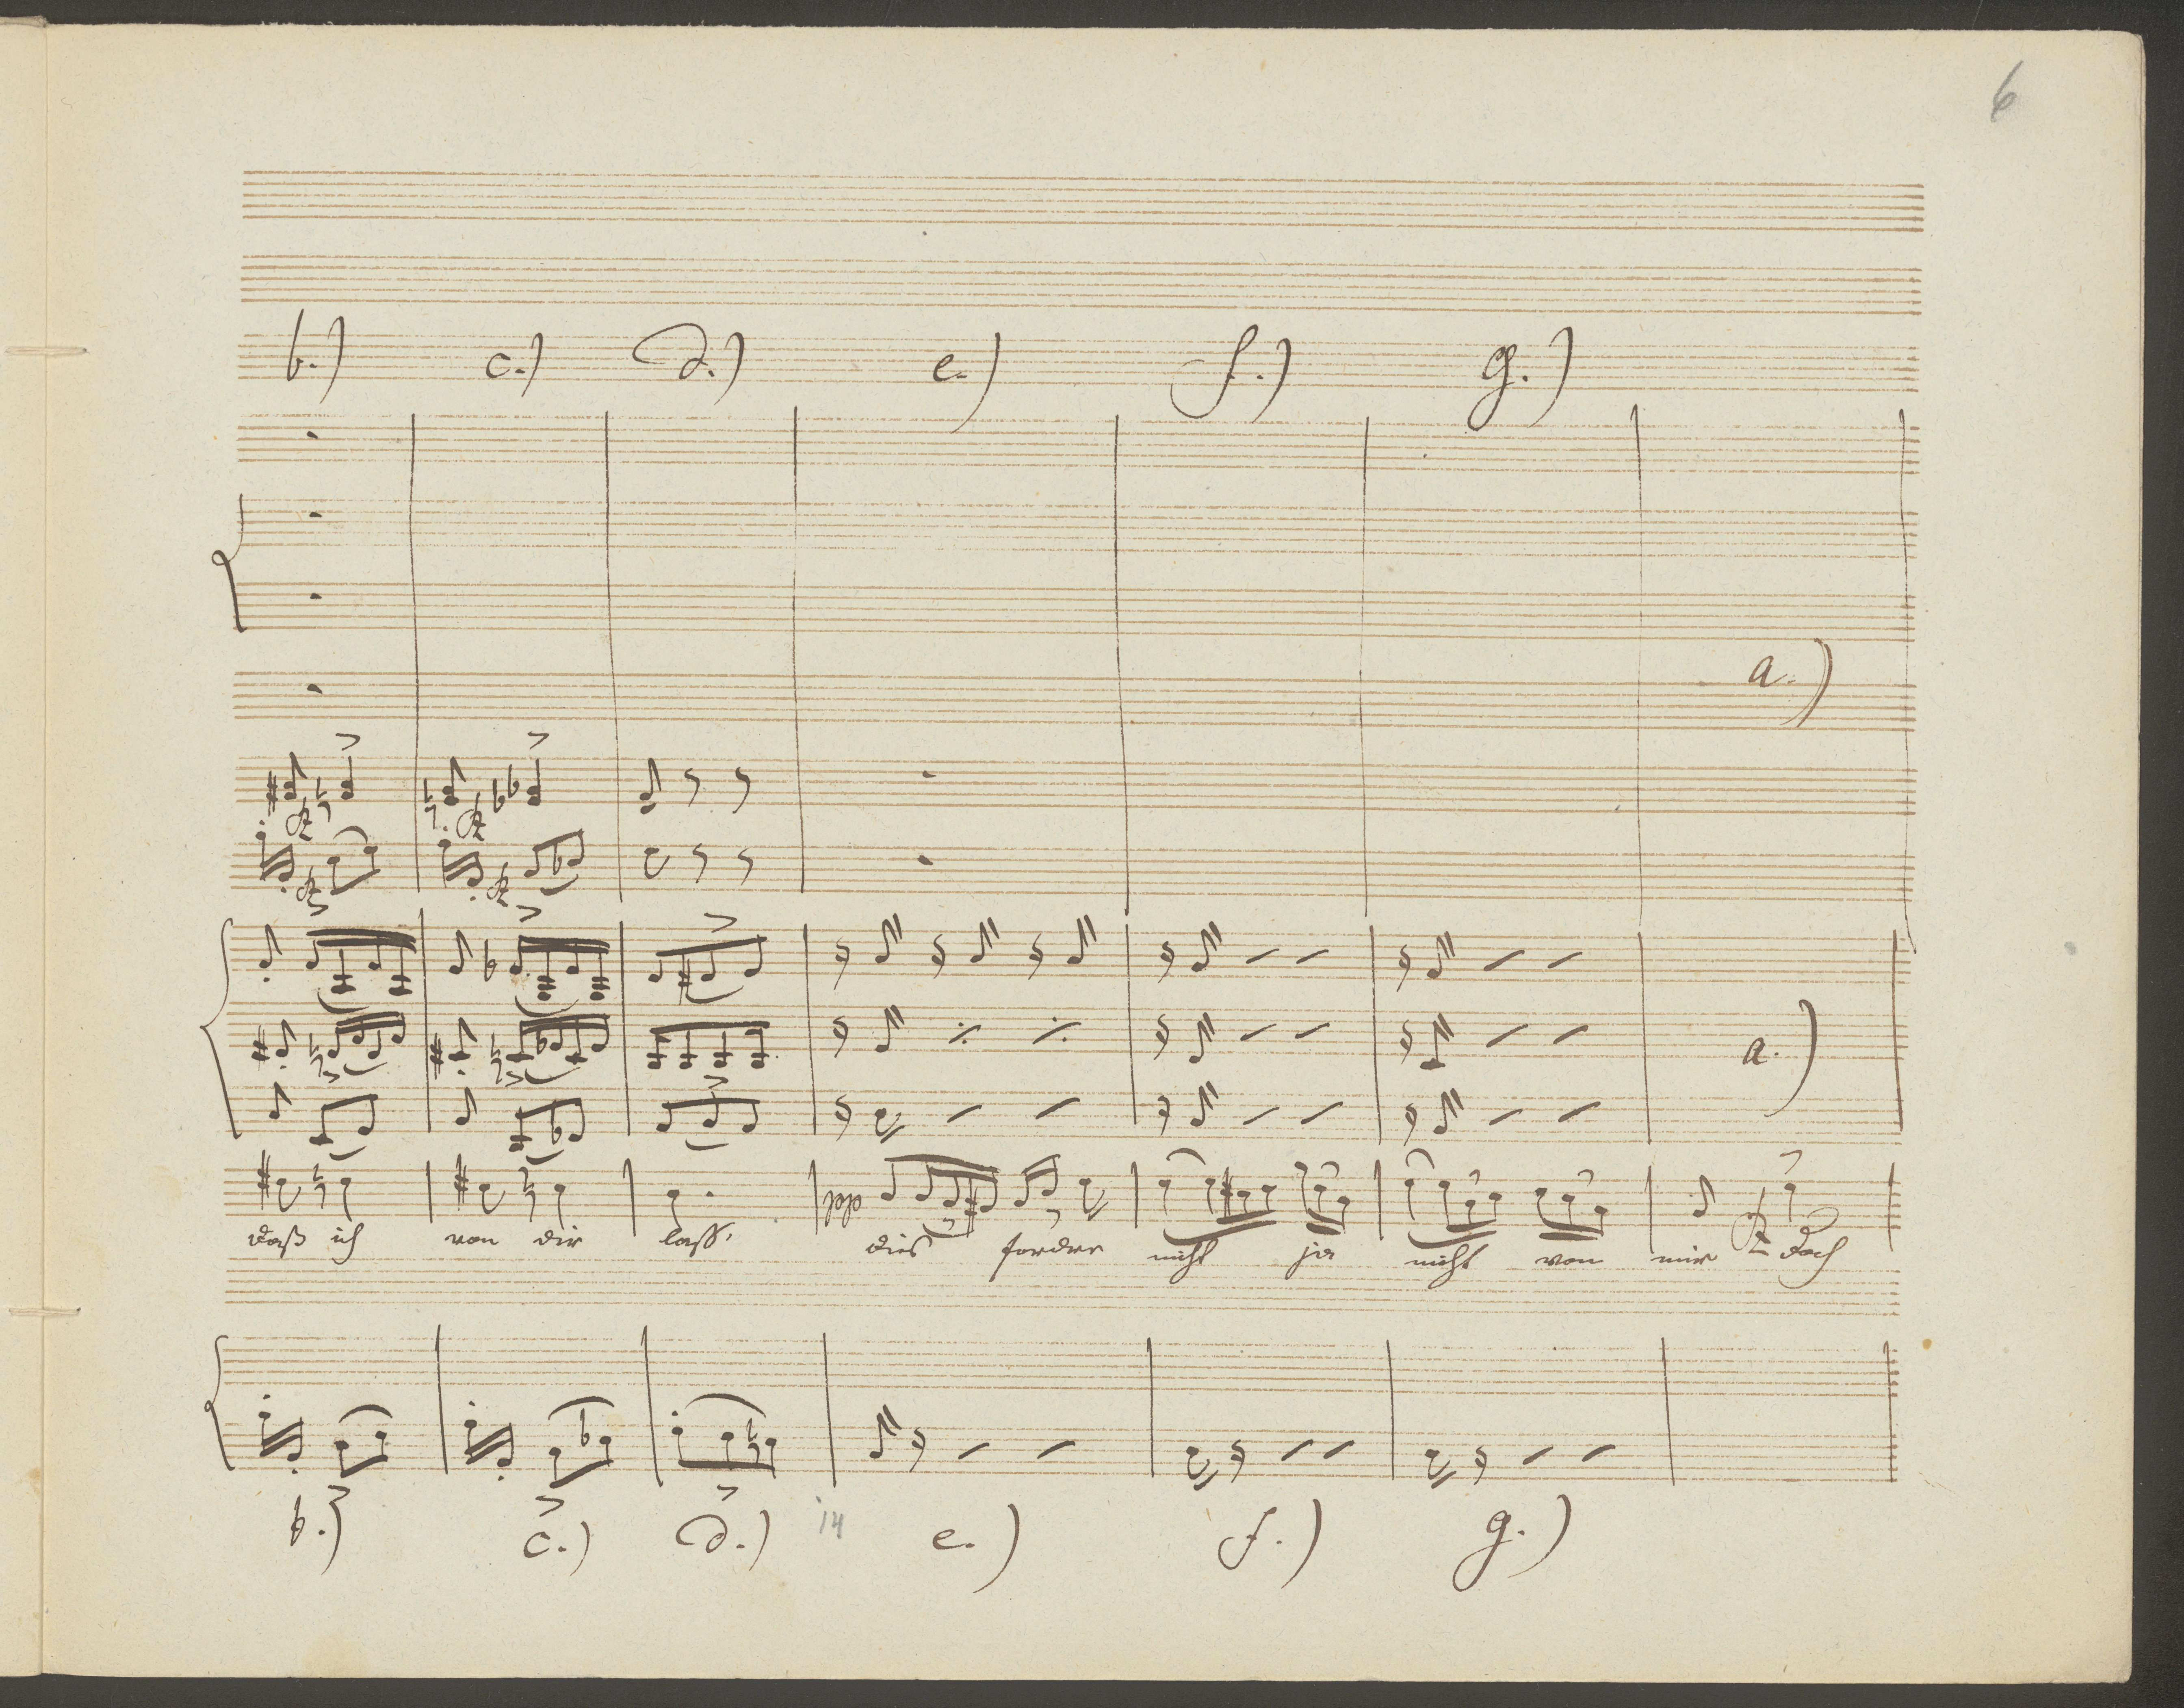 6
b.) c.) d.) e.) f.) g.)
a.)
a.)
pp
daß ich von dir lass, dies fordre nicht ja nicht von mir doch
b.) c.) d.) 14 e.) f.) g.)